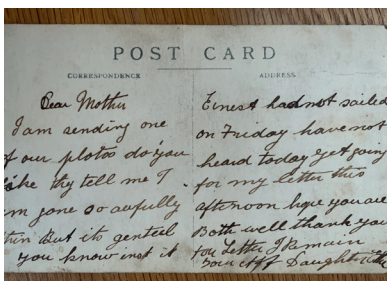 POST CARD
CORRESPONDENCE
ADDRESS
Dear Mother
I am sending one
of our photos do you
like thy tell me I
m gone so awfully
thin But its genteel
you know inst it
Ernest had not sailed
on Friday have not
heard today yet going
for my letter this
afternoon hope you are
Both well thank you
for Letter I Remain
Your Aff Daughter